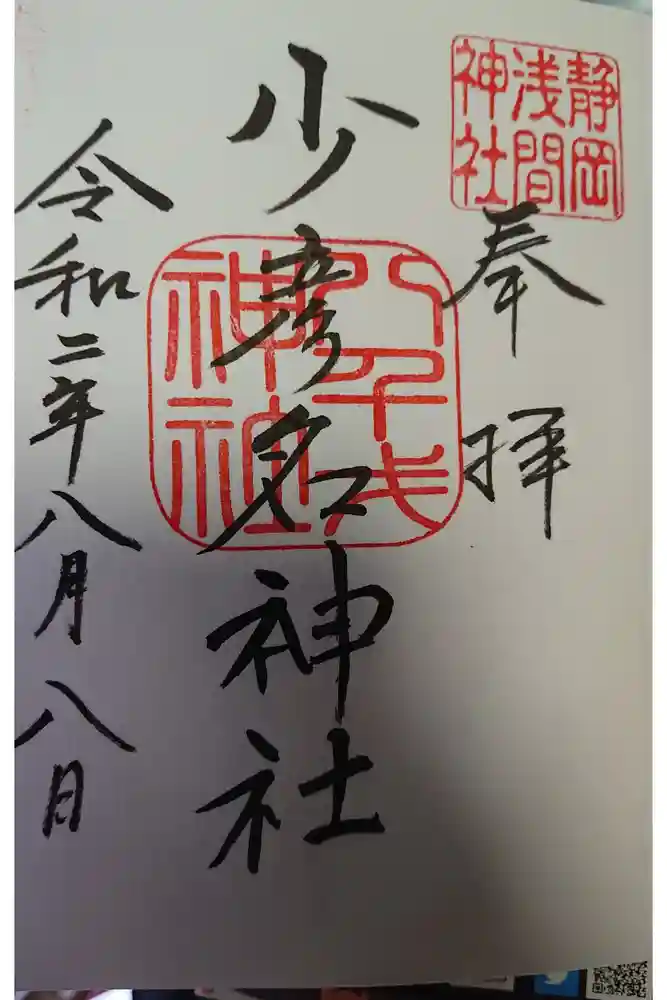 静岡
浅間
神社
奉拝
八千戈
神社
少彦名神社
令和二年八月八日